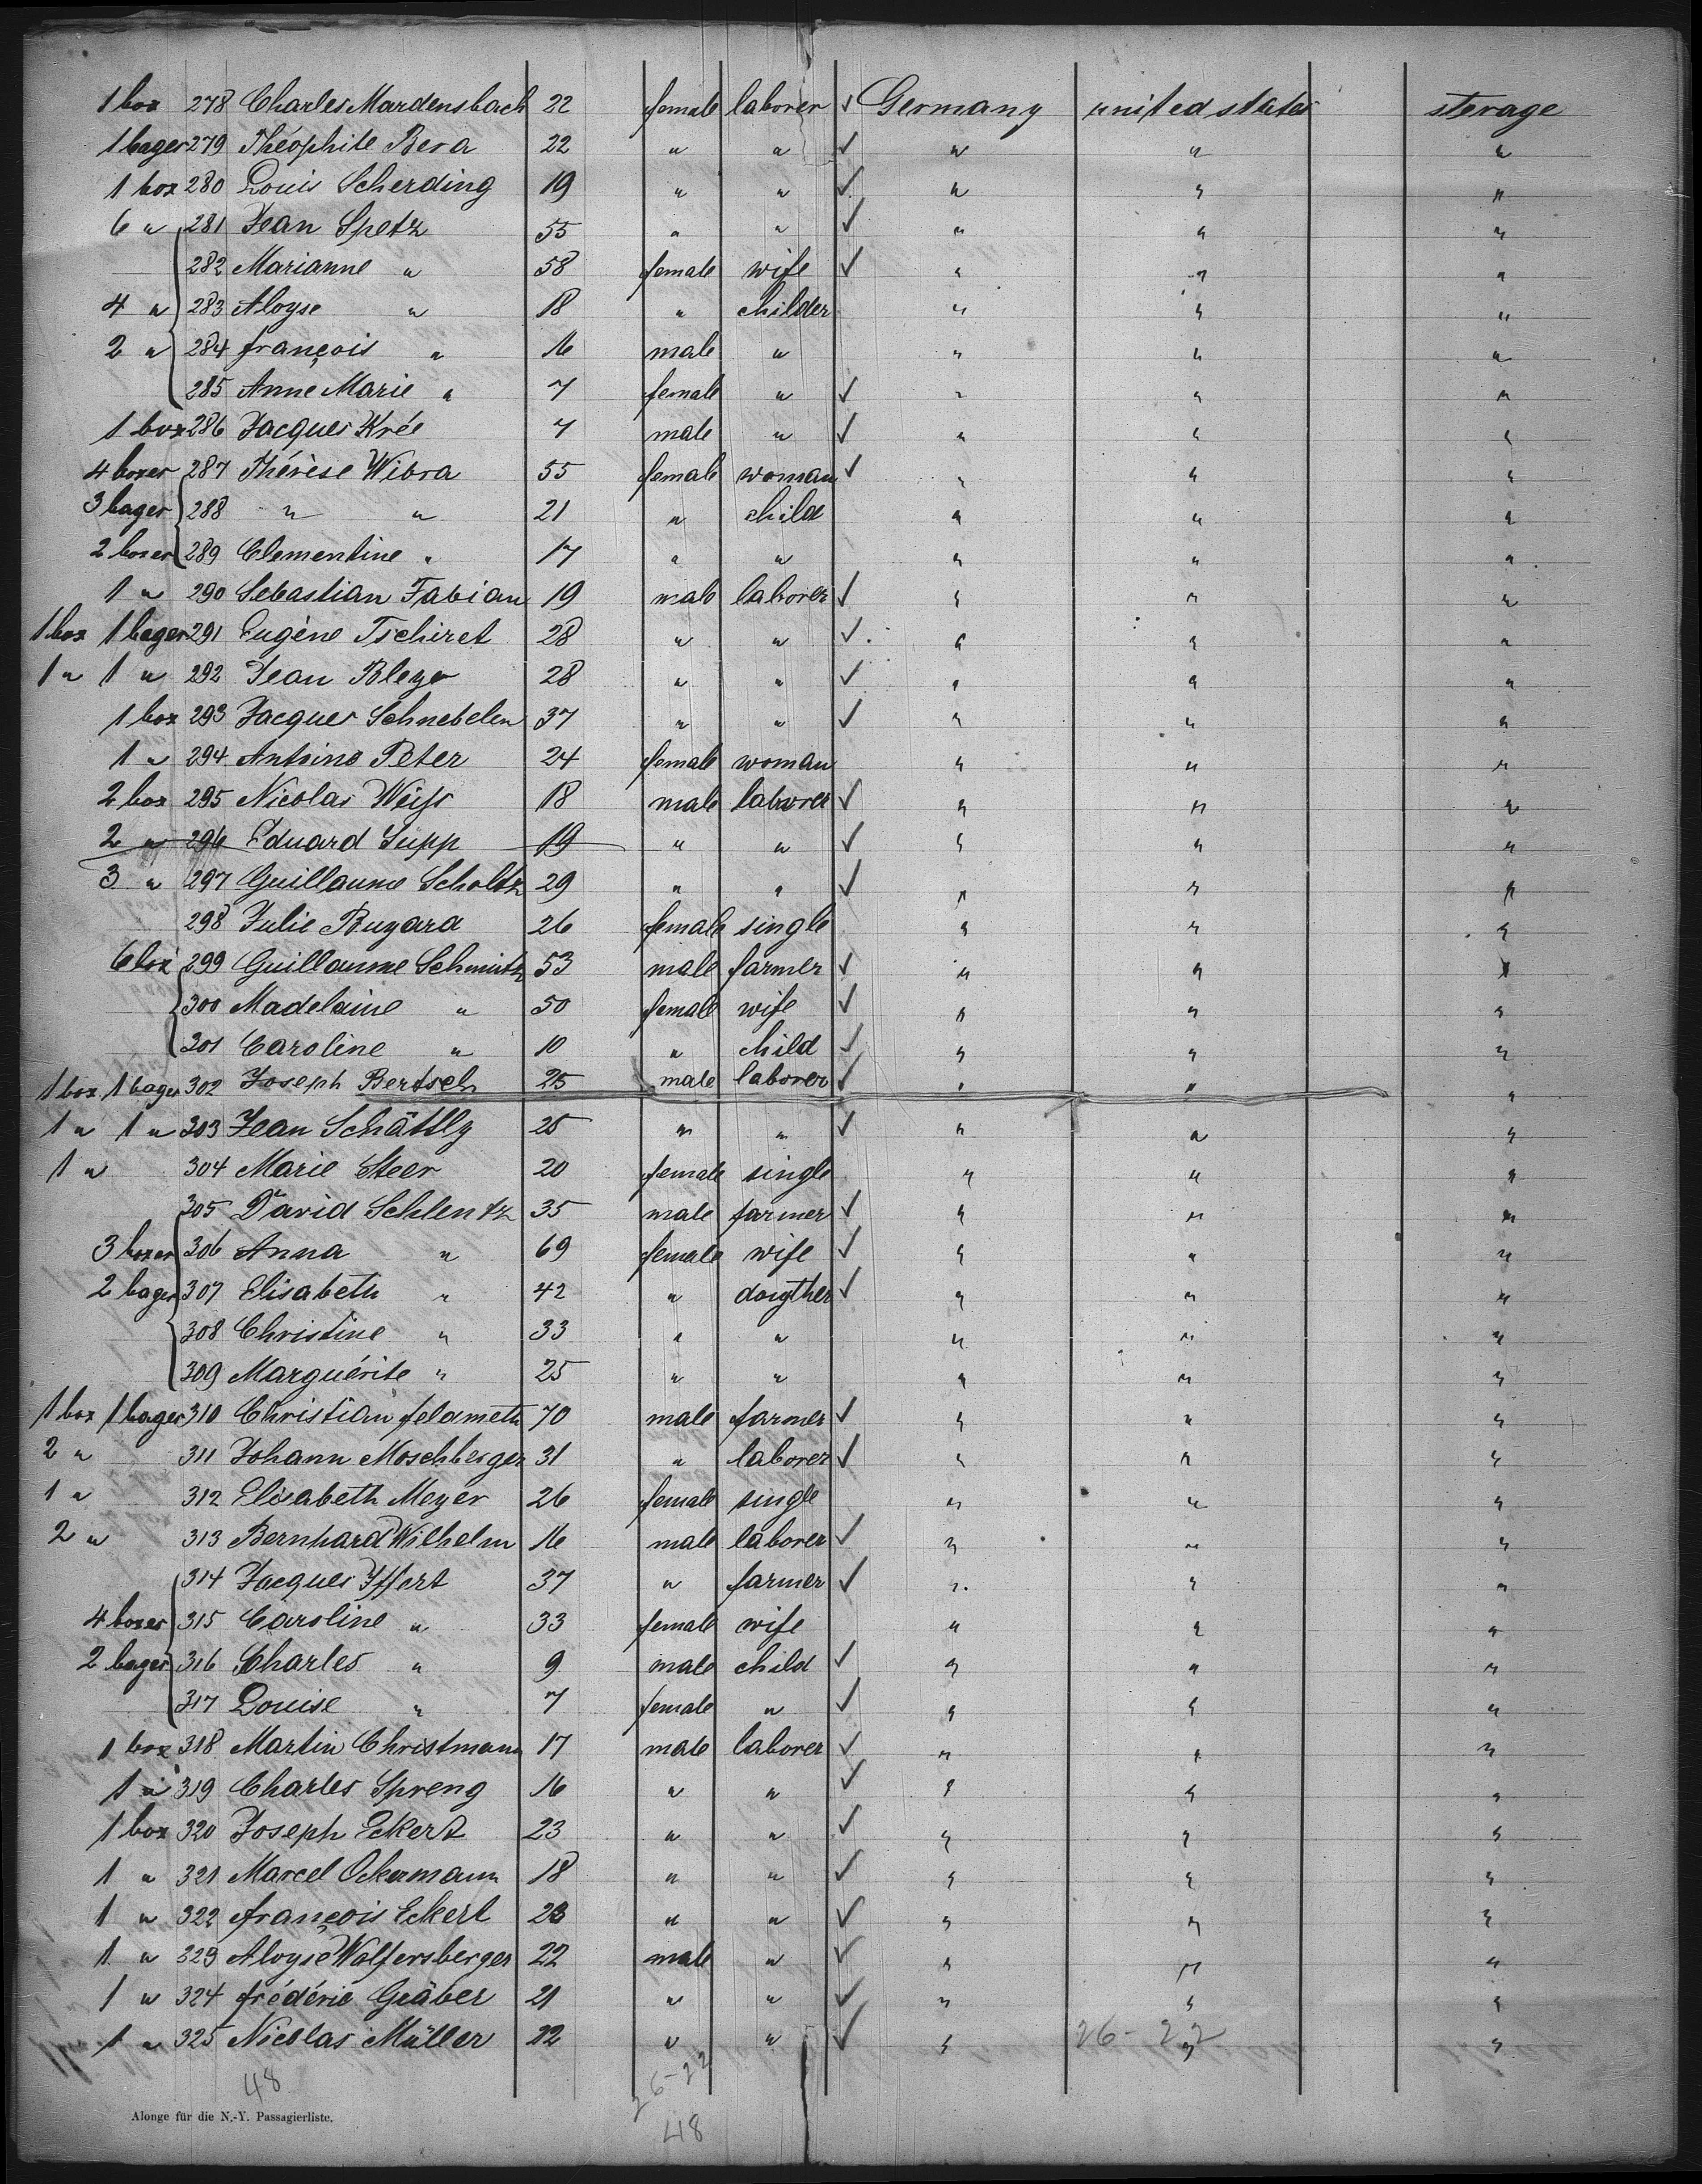 1 box 278 Charles Mardensbach 22 female laborer ✓ Germany united states sterage
1 bager 279 Théophile Bera 22 " " ✓ " " "
1 box 280 Louis Scherding 19 " " ✓ " " "
6 " 281 Jean Spetz 55 " " ✓ " " "
282 Marianne " 58 female wife ✓ " " "
4 " 283 Aloyse " 18 " childer " " "
2 " 284 françois " 16 male " " " "
285 Anne Marie " 7 female " ✓ " " "
1 box 286 Jacques Krée 7 male " ✓ " " "
4 boxer 287 Thérèse Wibra 55 female woman ✓ " " "
3 bager 288 " " 21 " child " " "
2 boxer 289 Clementine " 17 " " " " "
1 " 290 Sebastian Fabian 19 male laborer ✓ " " "
1 box 1 bager 291 Eugène Tschiret 28 " " ✓ " " "
1 " 1 " 292 Jean Bleyer 28 " " ✓ " " "
1 box 293 Jacques Schnebelen 37 " " ✓ " " "
1 " 294 Antoine Peter 24 female woman " " "
2 box 295 Nicolas Weiss 18 male laborer ✓ " " "
2 " 296 Eduard Supp 19 " " ✓ " " "
3 " 297 Guillaume Scholtz 29 " " ✓ " " "
298 Julie Buzara 26 female single " " "
6 box 299 Guillaume Schmitz 53 male farmer ✓ " " "
300 Madelaine " 50 female wife ✓ " " "
301 Caroline " 10 " child ✓ " " "
1 box 1 bager 302 Joseph Bertsch 25 male laborer ✓ " " "
1 " 1 " 303 Jean Schättly 25 " " ✓ " " "
1 " 304 Marie Steer 20 female single " " "
305 David Schlentz 35 male farmer ✓ " " "
3 boxer 306 Anna " 69 female wife ✓ " " "
2 bager 307 Elisabeth " 42 " dougther ✓ " " "
308 Christine " 33 " " " " "
309 Marguérite " 25 " " " " "
1 box 1 bager 310 Christian feldmeth 70 male farmer ✓ " " "
2 " 311 Johann Moschberger 31 " laborer ✓ " " "
1 " 312 Elisabeth Meyer 26 female single " " "
2 " 313 Bernhard Wilhelm 16 male laborer ✓ " " "
314 Jacques Iffert 37 " farmer ✓ " " "
4 boxer 315 Caroline " 33 female wife " " "
2 bager 316 Charles " 9 male child ✓ " " "
317 Louise " 7 female " ✓ " " "
1 box 318 Martin Christmann 17 male laborer ✓ " " "
1 " 319 Charles Spreng 16 " " ✓ " " "
1 box 320 Joseph Eckert 23 " " ✓ " " "
1 " 321 Marcel Ockermann 18 " " ✓ " " "
1 " 322 françois Eckert 23 " " ✓ " " "
1 " 323 Aloyse Wolfersberger 22 male " ✓ " " "
1 " 324 frédéric Gräber 21 " " ✓ " " "
1 " 325 Nicolas Müller 22 " " ✓ " " "
26-22
48 26-22
Alonge für die N.-Y. Passagierliste.
48